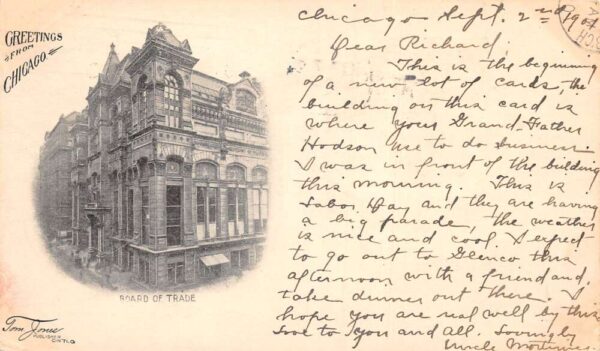 GREETINGS
FROM
CHICAGO
BOARD OF TRADE
Tom Jones
PUBLISHER
CINTI, O.
Chicago Sept. 2nd 1901
Dear Richard,
This is the beginning
of a new lot of cards, the
building on this card is
where your Grand Father
Hodson use to do business
I was in front of the building
this morning. This is
Labor Day and they are having
a big parade, the weather
is nice and cool. I expect
to go out to Glenco this
afternoon with a friend and,
take dinner out there. I
hope you are real well by this
Love to you and all. Lovingly
Uncle Mortimer